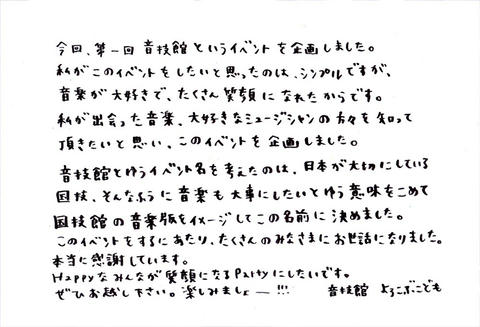 今回、第一回音技館というイベントを企画しました。
私がこのイベントをしたいと思ったのは、シンプルですが、
音楽が大好きで、たくさん笑顔になれたからです。
私が出会った音楽、大好きなミュージシャンの方々を知って
頂きたいと思い、このイベントを企画しました。
音技館とゆうイベント名を考えたのは、日本が大切にしている
国技、そんなふうに音楽も大事にしたいとゆう意味をこめて
国技館の音楽版をイメージしてこの名前に決めました。
このイベントをするにあたり、たくさんのみなさまにお世話になりました。
本当に感謝しています。
Happyなみんなが笑顔になるPartyにしたいです。
ぜひお越し下さい。楽しみましょー!!!
音技館 よろこぶこども